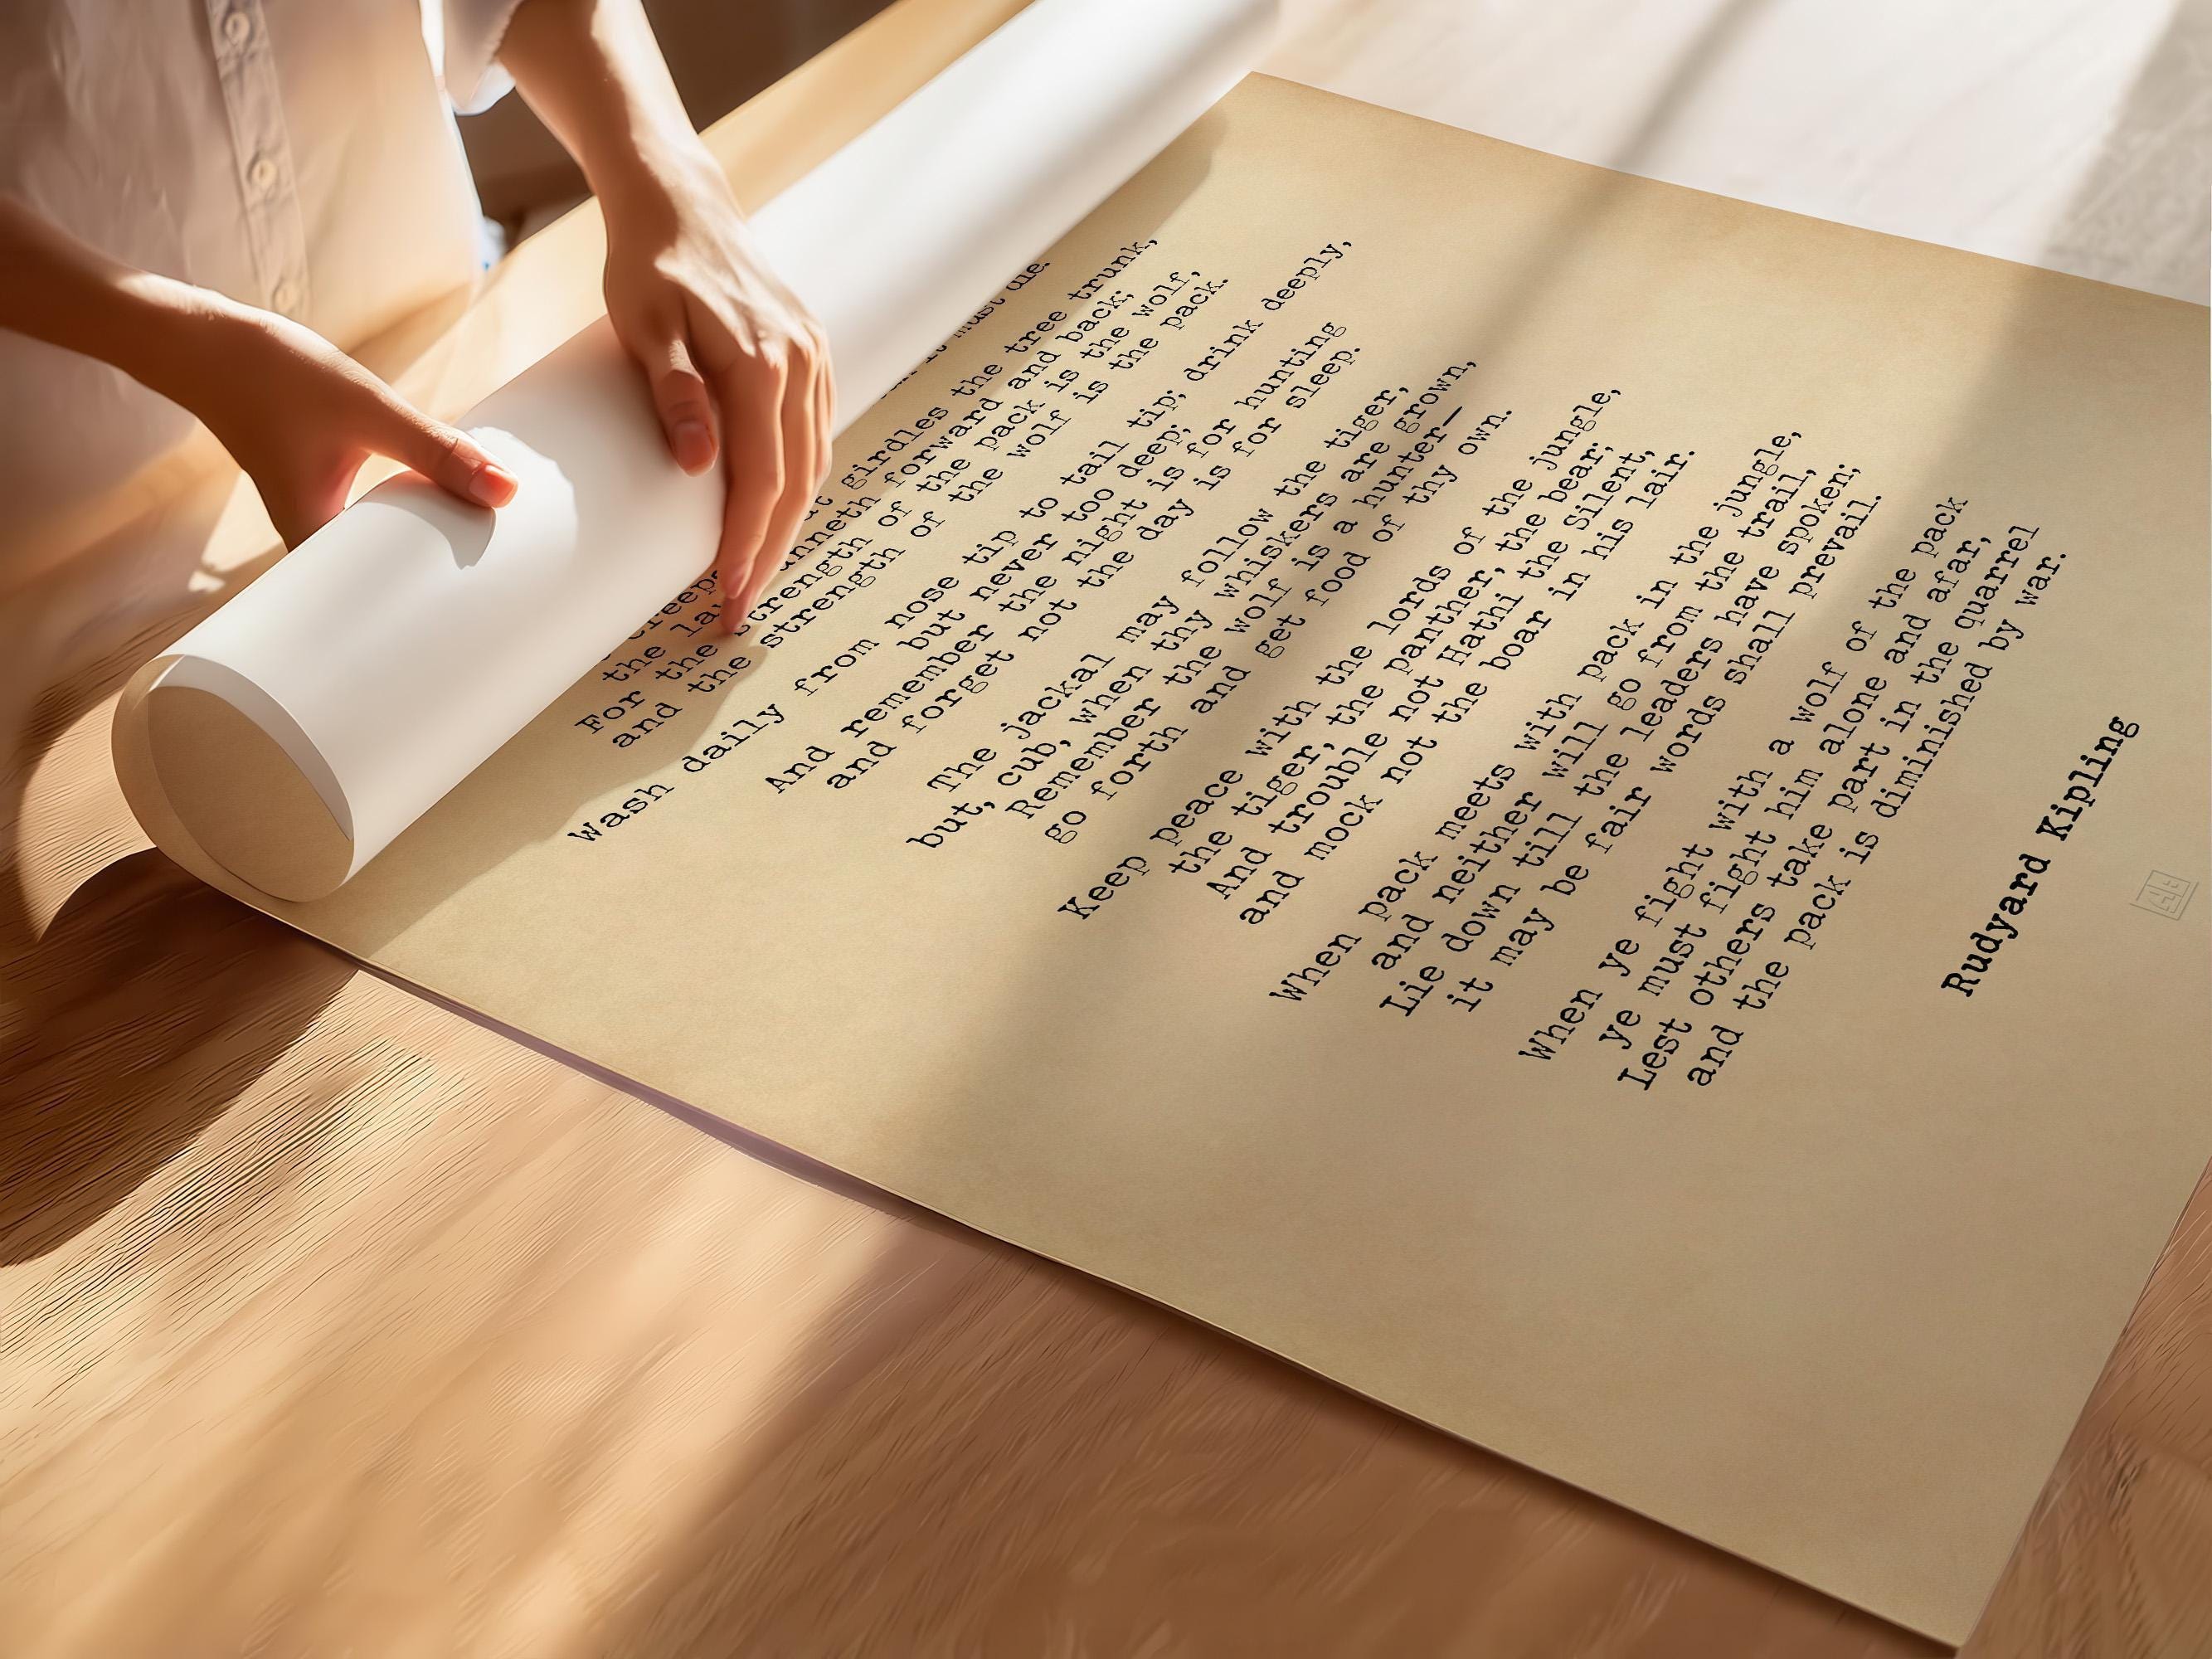 it must die.
creeper girdles the tree trunk,
the runneth forward and back;
For the strength of the pack is the wolf,
and the strength of the wolf is the pack.
Wash daily from nose tip to tail tip; drink deeply,
but never too deep;
And remember the night is for hunting
and forget not the day is for sleep.
The jackal may follow the tiger,
but, cub, when thy whiskers are grown,
Remember the wolf is a hunter—
go forth and get food of thy own.
Keep peace with the lords of the jungle,
the tiger, the panther, the bear;
And trouble not Hathi the Silent,
and mock not the boar in his lair.
When pack meets with pack in the jungle,
and neither will go from the trail,
Lie down till the leaders have spoken;
it may be fair words shall prevail.
When ye fight with a wolf of the pack
ye must fight him alone and afar,
Lest others take part in the quarrel
and the pack is diminished by war.
Rudyard Kipling